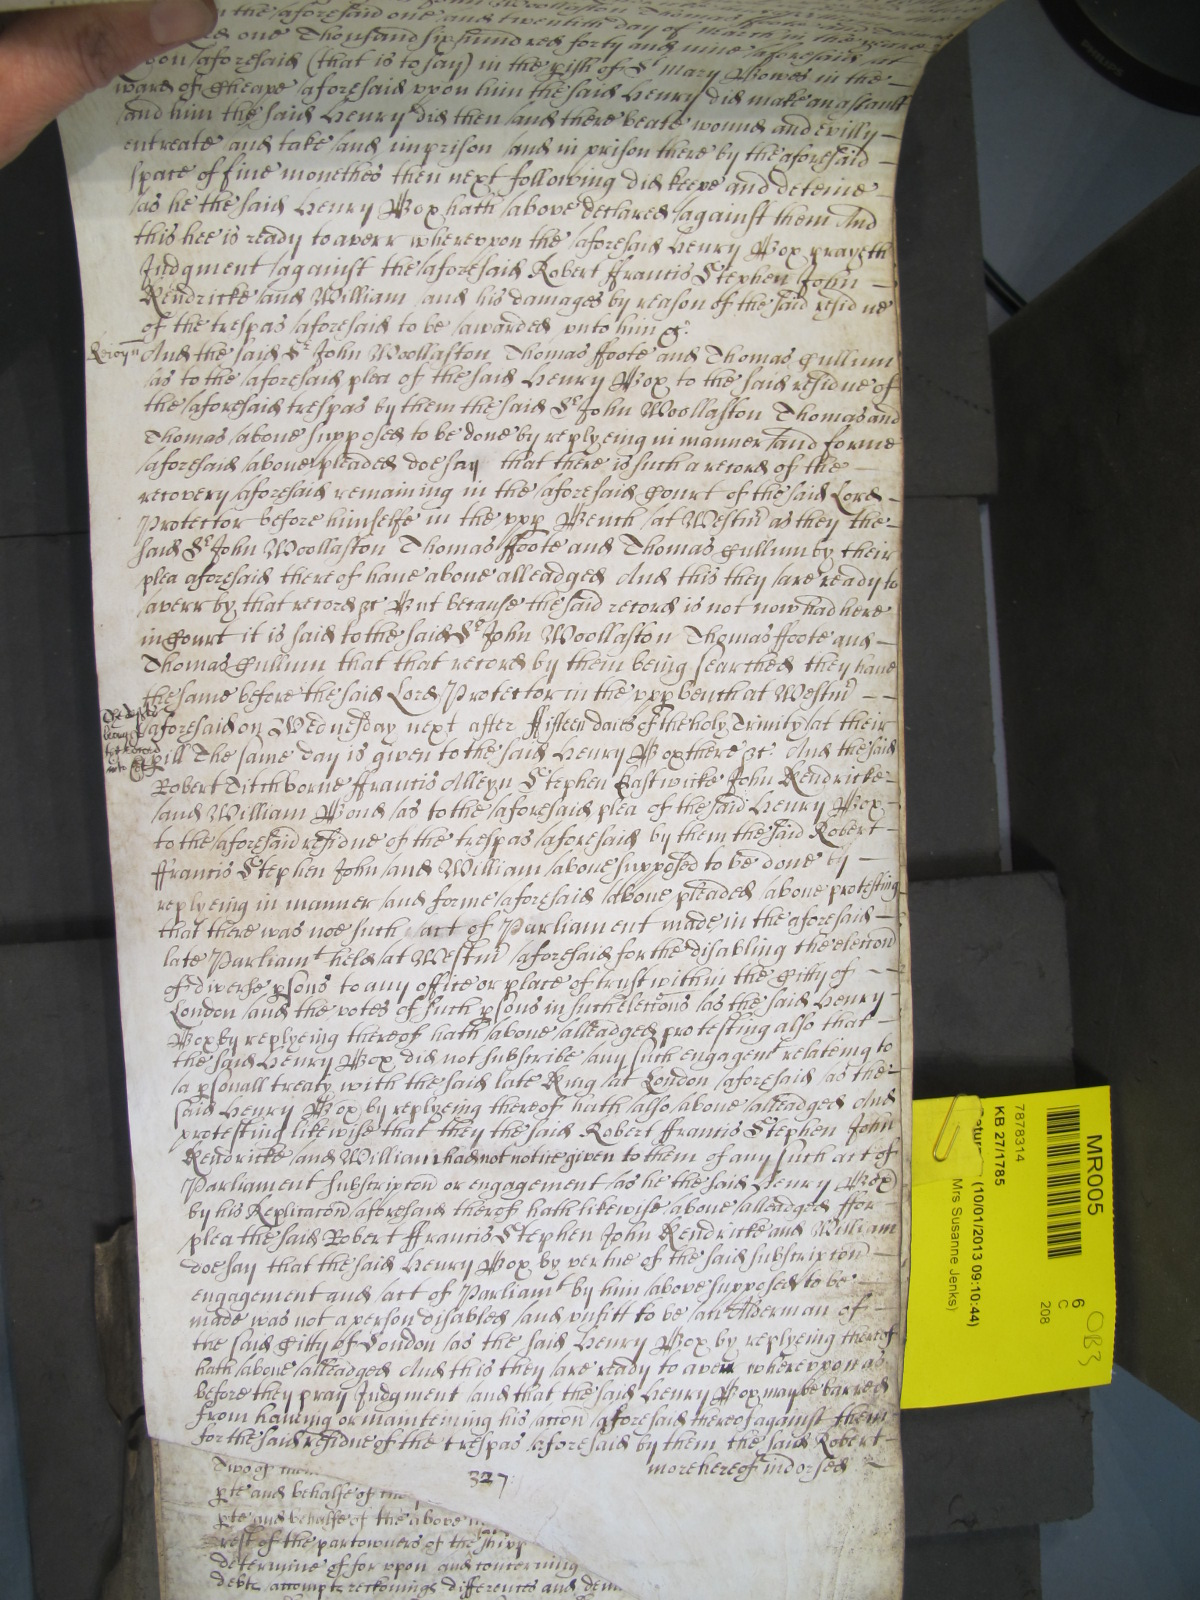 in the aforesaid one and twentith day of March in the yeare
one Thousand six hundred forty and nine aforesaid at
London aforesaid (that is to say) in the pish of St Mary Bowe in the
ward of Cheape aforesaid vpon him the said Henry did make an assault
and him the said Henry did then and there beate wound and evilly
entreate and take and imprison and in prison there by the aforesaid
space of five monethes then next following did keepe and deteine
as he the said Henry Box hath above declared against them And
this hee is ready to averr wherevpon the aforesaid Henry Box prayeth
Judgment against the aforesaid Robert ffrancis Stephen John
Kendricke and William and his damages by reason of the said residue
of the trespas aforesaid to be awarded vnto him &c
And the said Sr John Woollaston Thomas ffoote and Thomas Cullum
as to the aforesaid plea of the said Henry Box to the said residue of
the aforesaid trespas by them the said Sr John Woollaston Thomas and
Thomas above supposed to be done by replyeing in manner and forme
aforesaid above pleaded doe say that there is such a record of the
recovery aforesaid remaining in the aforesaid Court of the said Lord
Protector before himselfe in the vpp Bench at Westm as they the
said Sr John Woollaston Thomas ffoote and Thomas Cullum by their
plea aforesaid thereof have above alleadged And this they are ready to
averr by that record &c But because the said record is not now had here
in Court it is said to the said Sr John Woollaston Thomas ffoote and
Thomas Cullum that that record by them being searched they have
the same before the said Lord Protector in the vpp bench at Westm
aforesaid on Wednesday next after ffifteen daies of the holy Trinity at their
pill The same day is given to the said Henry Box there &c And the said
Robert Titchborne ffrancis Alleyn Stephen Eastwicke John Kendricke
and William Bond as to the aforesaid plea of the said Henry Box
to the aforesaid residue of the trespas aforesaid by them the said Robert
ffrancis Stephen John and William above supposed to be done by
replyeing in manner and forme aforesaid above pleaded above protesting
that there was noe such act of Parliament made in the aforesaid
late Parliamt held at Westm aforesaid for the disabling the election
of diverse psons to any office or place of trust within the Citty of
London and the votes of such psons in such elecons as the said Henry
Box by replyeing thereof hath above alleadged protesting also that
the said Henry Box did not subscribe any such engagemt relateing to
a psonall treaty with the said late King at London aforesaid as the
said Henry Box by replyeing thereof hath also above alleadged And
protesting likewise that they the said Robert ffrancis Stephen John
Kendricke and William had not notice given to them of any such act of
Parliament subscripcon or engagement as he the said Henry Box
by his Replicacon aforesaid therof hath likewise above alleadged ffor
plea the said Robert ffrancis Stephen John Kendricke and William
doe say that the said Henry Box by vertue of the said subscripcon
engagement and act of Parliamt by him above supposed to be
made was not a person disabled and vnfitt to be an Alderman of
the said Citty of London as the said Henry Box by replyeing thereof
hath above alleadged And this they are ready to averr wherevpon as
before they pray Judgment and that the said Henry Box may be barred
from haveing or mainteining his accon aforesaid thereof against them
for the said residue of the trespas aforesaid by them the said Robert
more hereof indorsed
327
Two of
pte and behalfe of the
pte and behalfe of the above
rest of the partowners of the shipp
determine of for vpon and concerning
debts accompts reckonings differences and
PHILIPS
MR005
6
C
208
OB3
7878314
KB 27/1785
Return (10/01/2013 09:10:44)
Mrs Susanne Jenks)